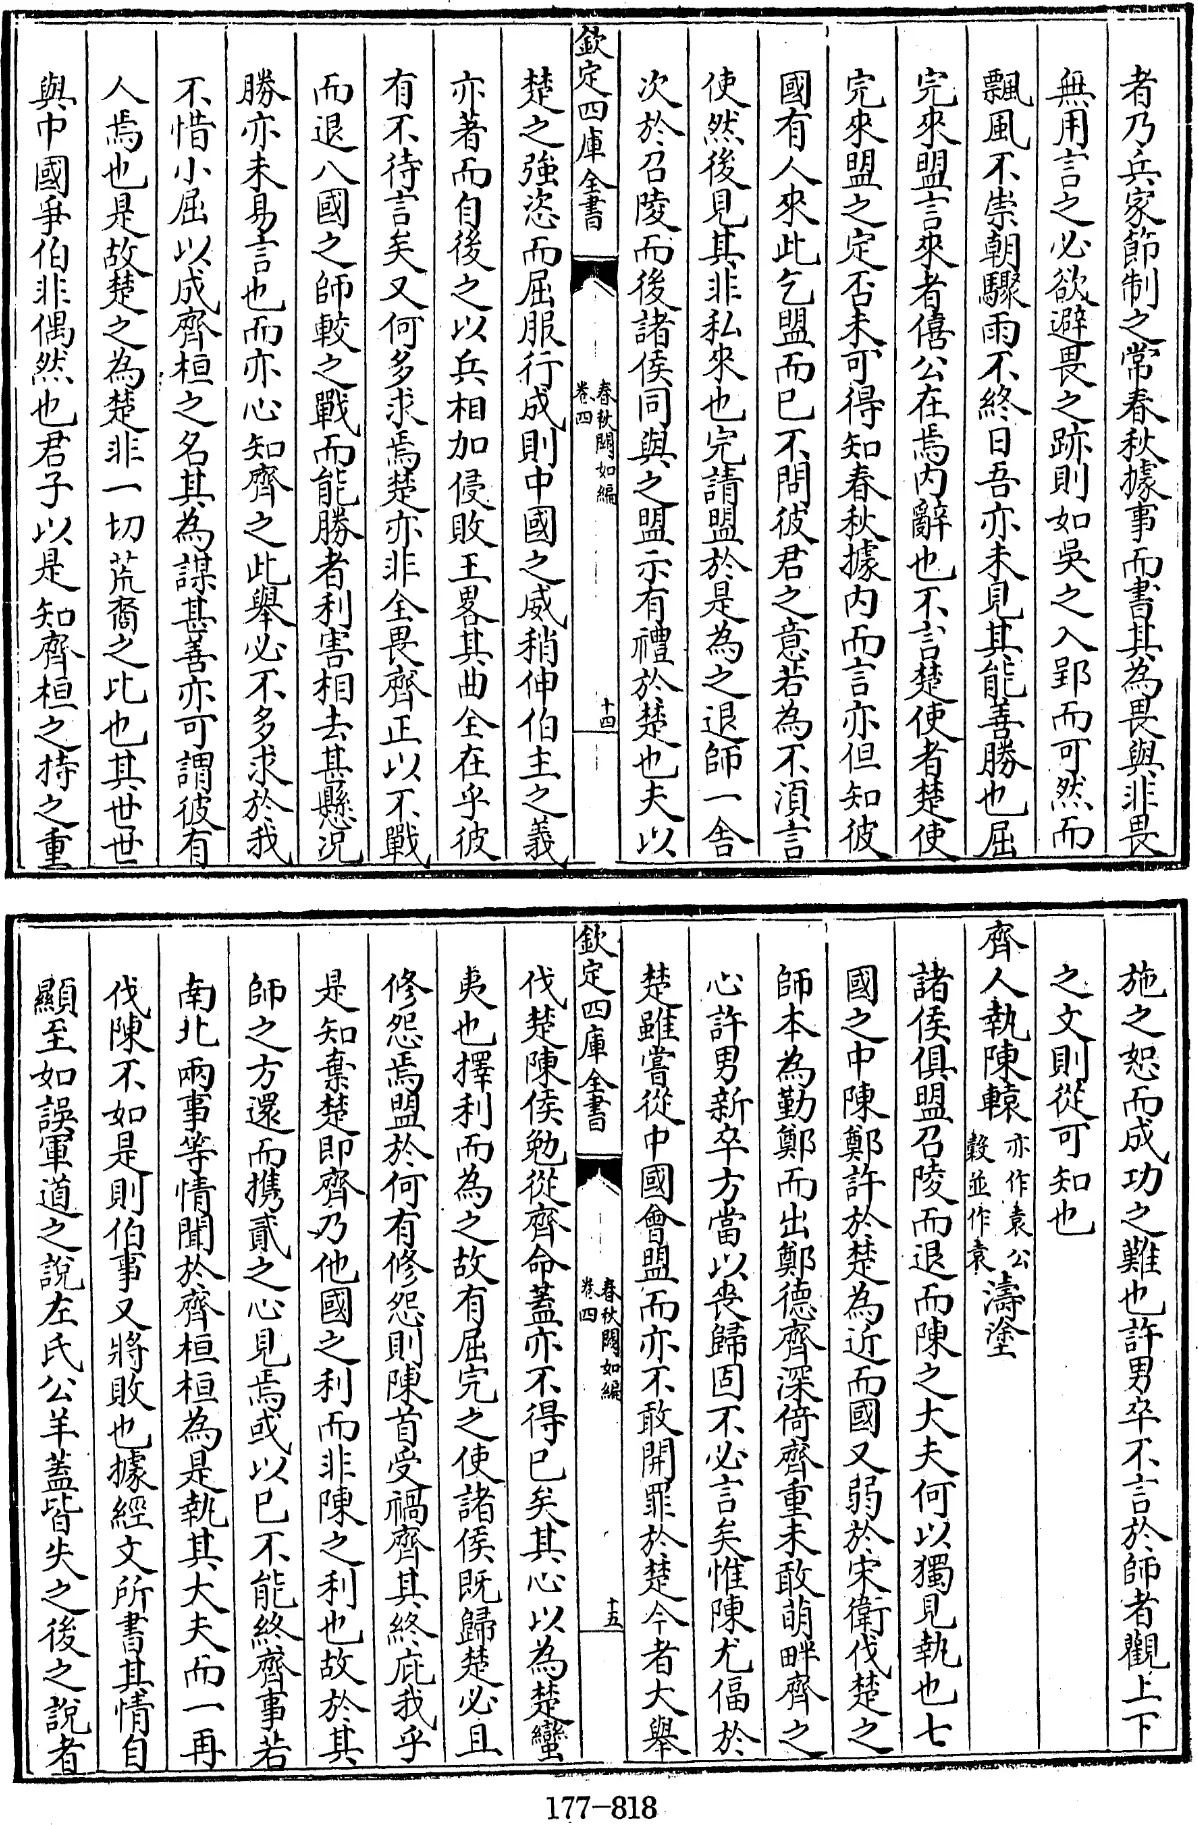 者乃兵家節制之常春秋據事而書其為畏與非畏
無用言之必欲避畏之跡則如吳之入郢而可然而
飄風不崇朝驟雨不終日吾亦未見其能善勝也屈
完來盟言來者僖公在焉内辭也不言楚使者楚使
完來盟之定否未可得知春秋據内而言亦但知彼
國有人來此乞盟而已不問彼君之意若為不湏言
使然後見其非私來也完請盟於是為之退師一舍
次於召陵而後諸侯同與之盟示有禮於楚也夫以
欽定四庫全書
春秋闕如編
卷四
十四
楚之強恣而屈服行成則中國之威稍伸伯主之義
亦著而自後之以兵相加侵敗王畧其曲全在乎彼
有不待言矣又何多求焉楚亦非全畏齊正以不戰
而退八國之師較之戰而能勝者利害相去甚懸况
勝亦未易言也而亦心知齊之此舉必不多求於我
不惜小屈以成齊桓之名其為謀甚善亦可謂彼有
人焉也是故楚之為楚非一切荒裔之比也其世世
與中國爭伯非偶然也君子以是知齊桓之持之重
施之恕而成功之難也許男卒不言於師者觀上下
之文則從可知也
齊人執陳轅亦作袁公穀並作袁濤塗
諸侯俱盟召陵而退而陳之大夫何以獨見執也七
國之中陳鄭許於楚為近而國又弱於宋衛伐楚之
師本為勤鄭而出鄭德齊深倚齊重未敢萌畔齊之
心許男新卒方當以喪歸固不必言矣惟陳尤偪於
楚雖嘗從中國會盟而亦不敢開罪於楚今者大舉
欽定四庫全書
春秋闕如編
卷四
十五
伐楚陳侯勉從齊命蓋亦不得已矣其心以為楚蠻
夷也擇利而為之故有屈完之使諸侯既歸楚必且
修怨焉盟於何有修怨則陳首受禍齊其終庇我乎
是知棄楚即齊乃他國之利而非陳之利也故於其
師之方還而攜貳之心見焉或以已不能終齊事若
南北兩事等情聞於齊桓桓為是執其大夫而一再
伐陳不如是則伯事又將敗也據經文所書其情自
顯至如誤軍道之說左氏公羊蓋皆失之後之說者
177-818